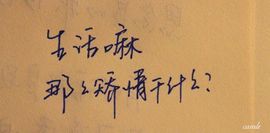 生活嘛
那么矫情干什么？